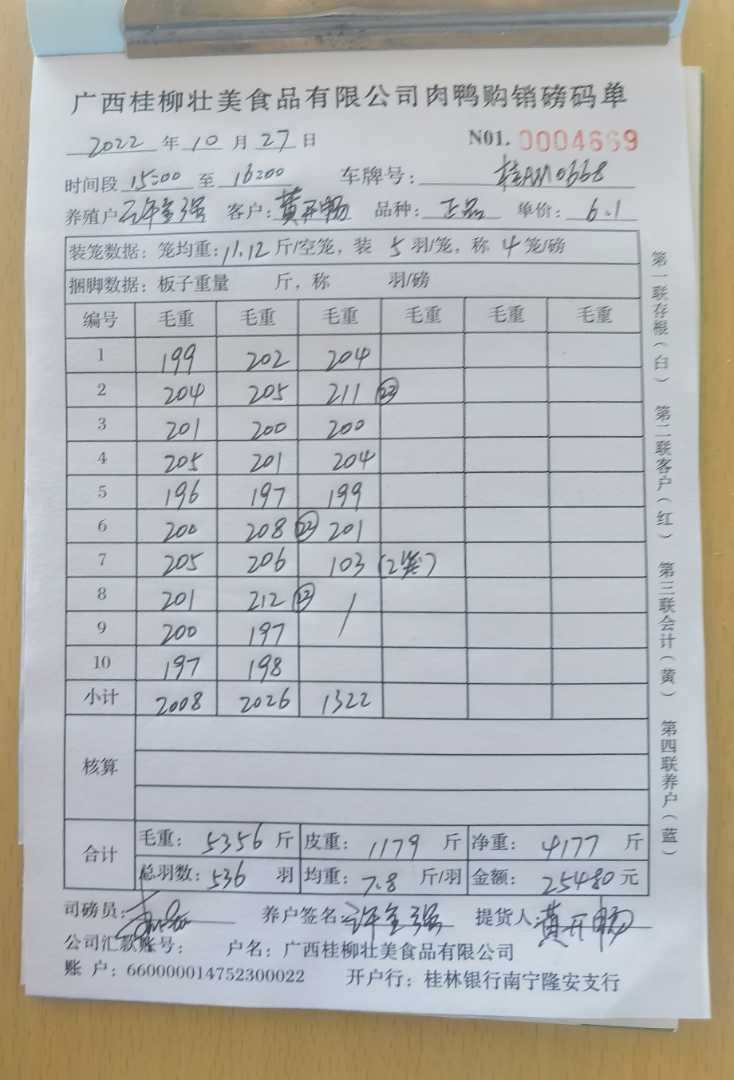 广西桂柳壮美食品有限公司肉鸭购销磅码单
2022 年 10 月 27 日 N01. 0004669
时间段 15:00 至 16:00 车牌号:
养殖户 许金强 客户: 黄开畅 品种: 正品 单价: 6.1
装笼数据: 笼均重: 11.12 斤/空笼, 装 5 羽/笼, 称 4 笼/磅
捆脚数据: 板子重量 斤, 称 羽/磅
编号 毛重 毛重 毛重 毛重 毛重 毛重
1 199 202 204
2 204 205 211 ㉓
3 201 200 200
4 205 201 204
5 196 197 199
6 200 208 201
7 205 206 103 (2笼)
8 201 212 /
9 200 197
10 197 198
小计 2008 2026 1322
核算
合计 毛重: 5356 斤 皮重: 1179 斤 净重: 4177 斤
总羽数: 536 羽 均重: 7.8 斤/羽 金额: 25480 元
司磅员: 养户签名: 许金强 提货人: 黄开畅
公司汇款账号: 户名: 广西桂柳壮美食品有限公司
账 户: 660000014752300022 开户行: 桂林银行南宁隆安支行
第一联存根(白) 第二联客户(红) 第三联会计(黄) 第四联养户(蓝)